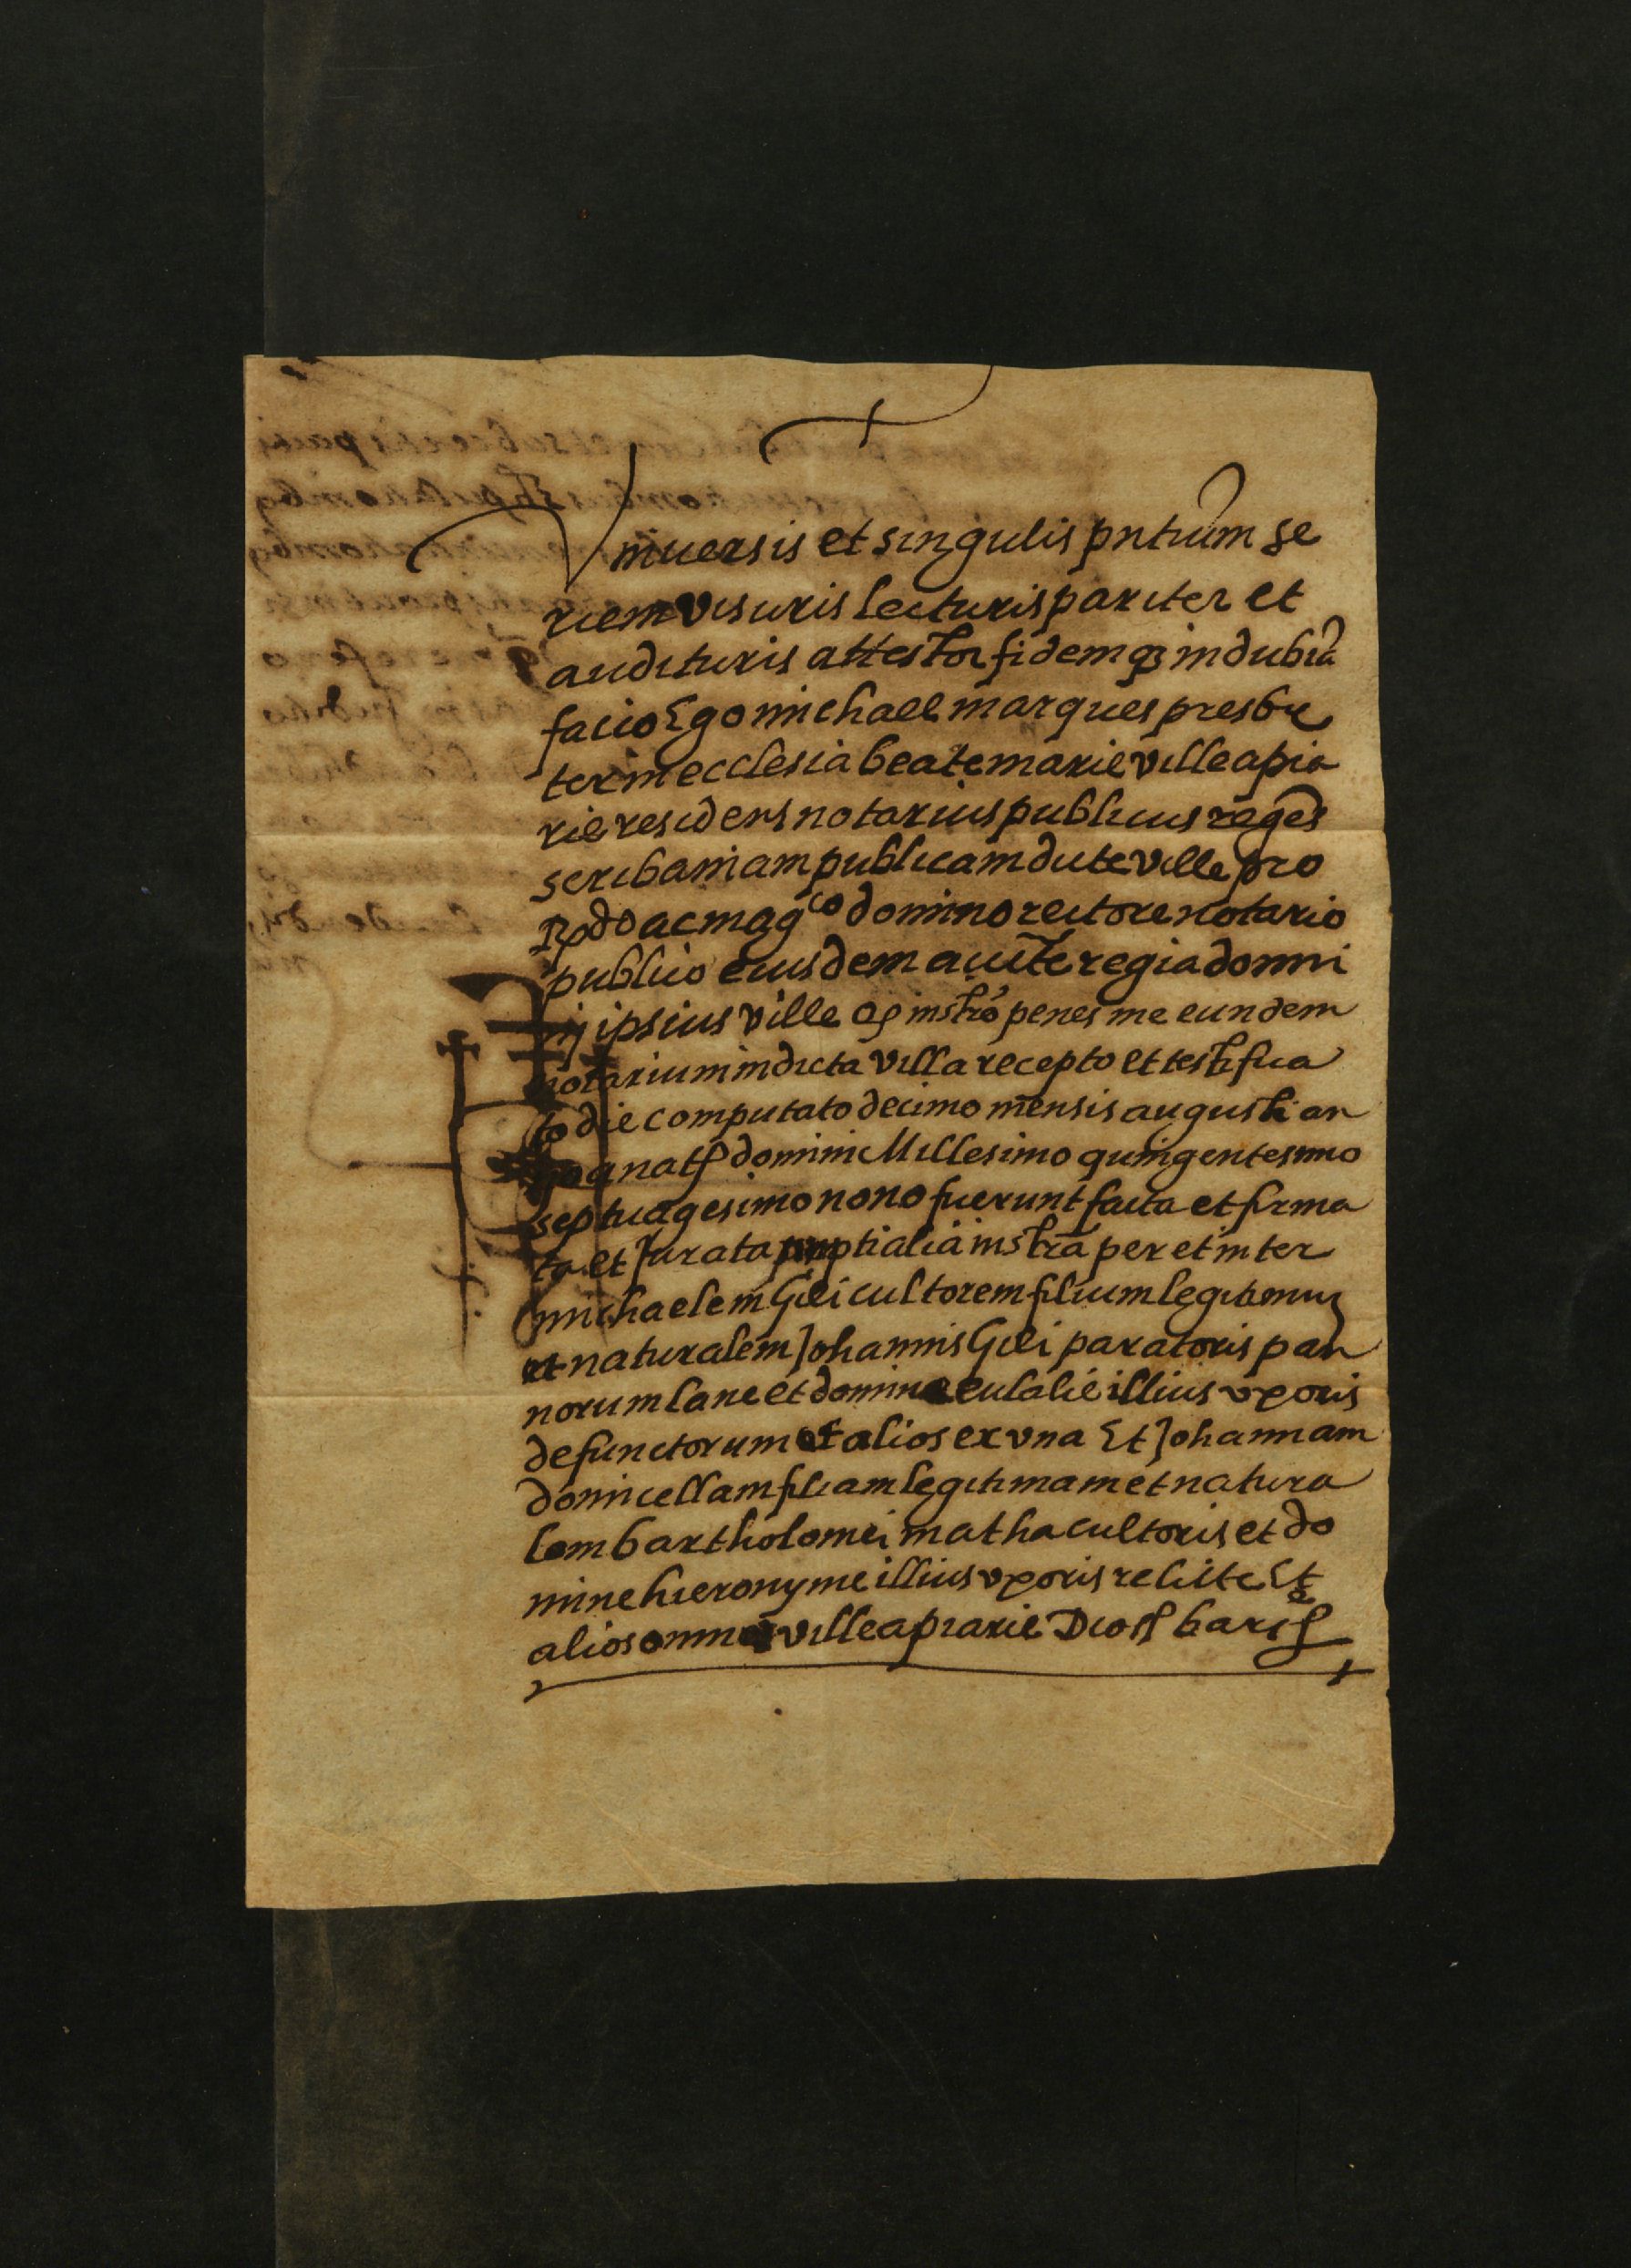 Vniuersis et singulis pntium se
riem visuris lecturis pariter et
audituris attestor fidemq3 indubiã
facio Ego michael marques presby
ter in ecclesia beate marie ville apia
rie residens notarius publicus regẽs
scribaniam publicam dicte ville pro
Rdo ac magco domino rectore notario
publico eiusdem aucte regia domi
nij ipsius ville q instrõ penes me eundem
notarium in dicta villa recepto et testifica
to die computato decimo mensis augusti an
no a nat domini Millesimo quingentesimo
septuagesimo nono fuerunt facta et firma
ta et Jurata nuptialia instra per et inter
michaelem Gili cultorem filium legitimum
et naturalem Johannis Gili paratoris pan
norum lane et domine eulalie illius vxoris
defunctorum et alios ex vna Et Johannam
domicellam filiam legitimam et natura
lem bartholomei matha cultoris et do
mine hieronyme illius vxoris relicte Et
alios omnes ville apiarie Dios bars